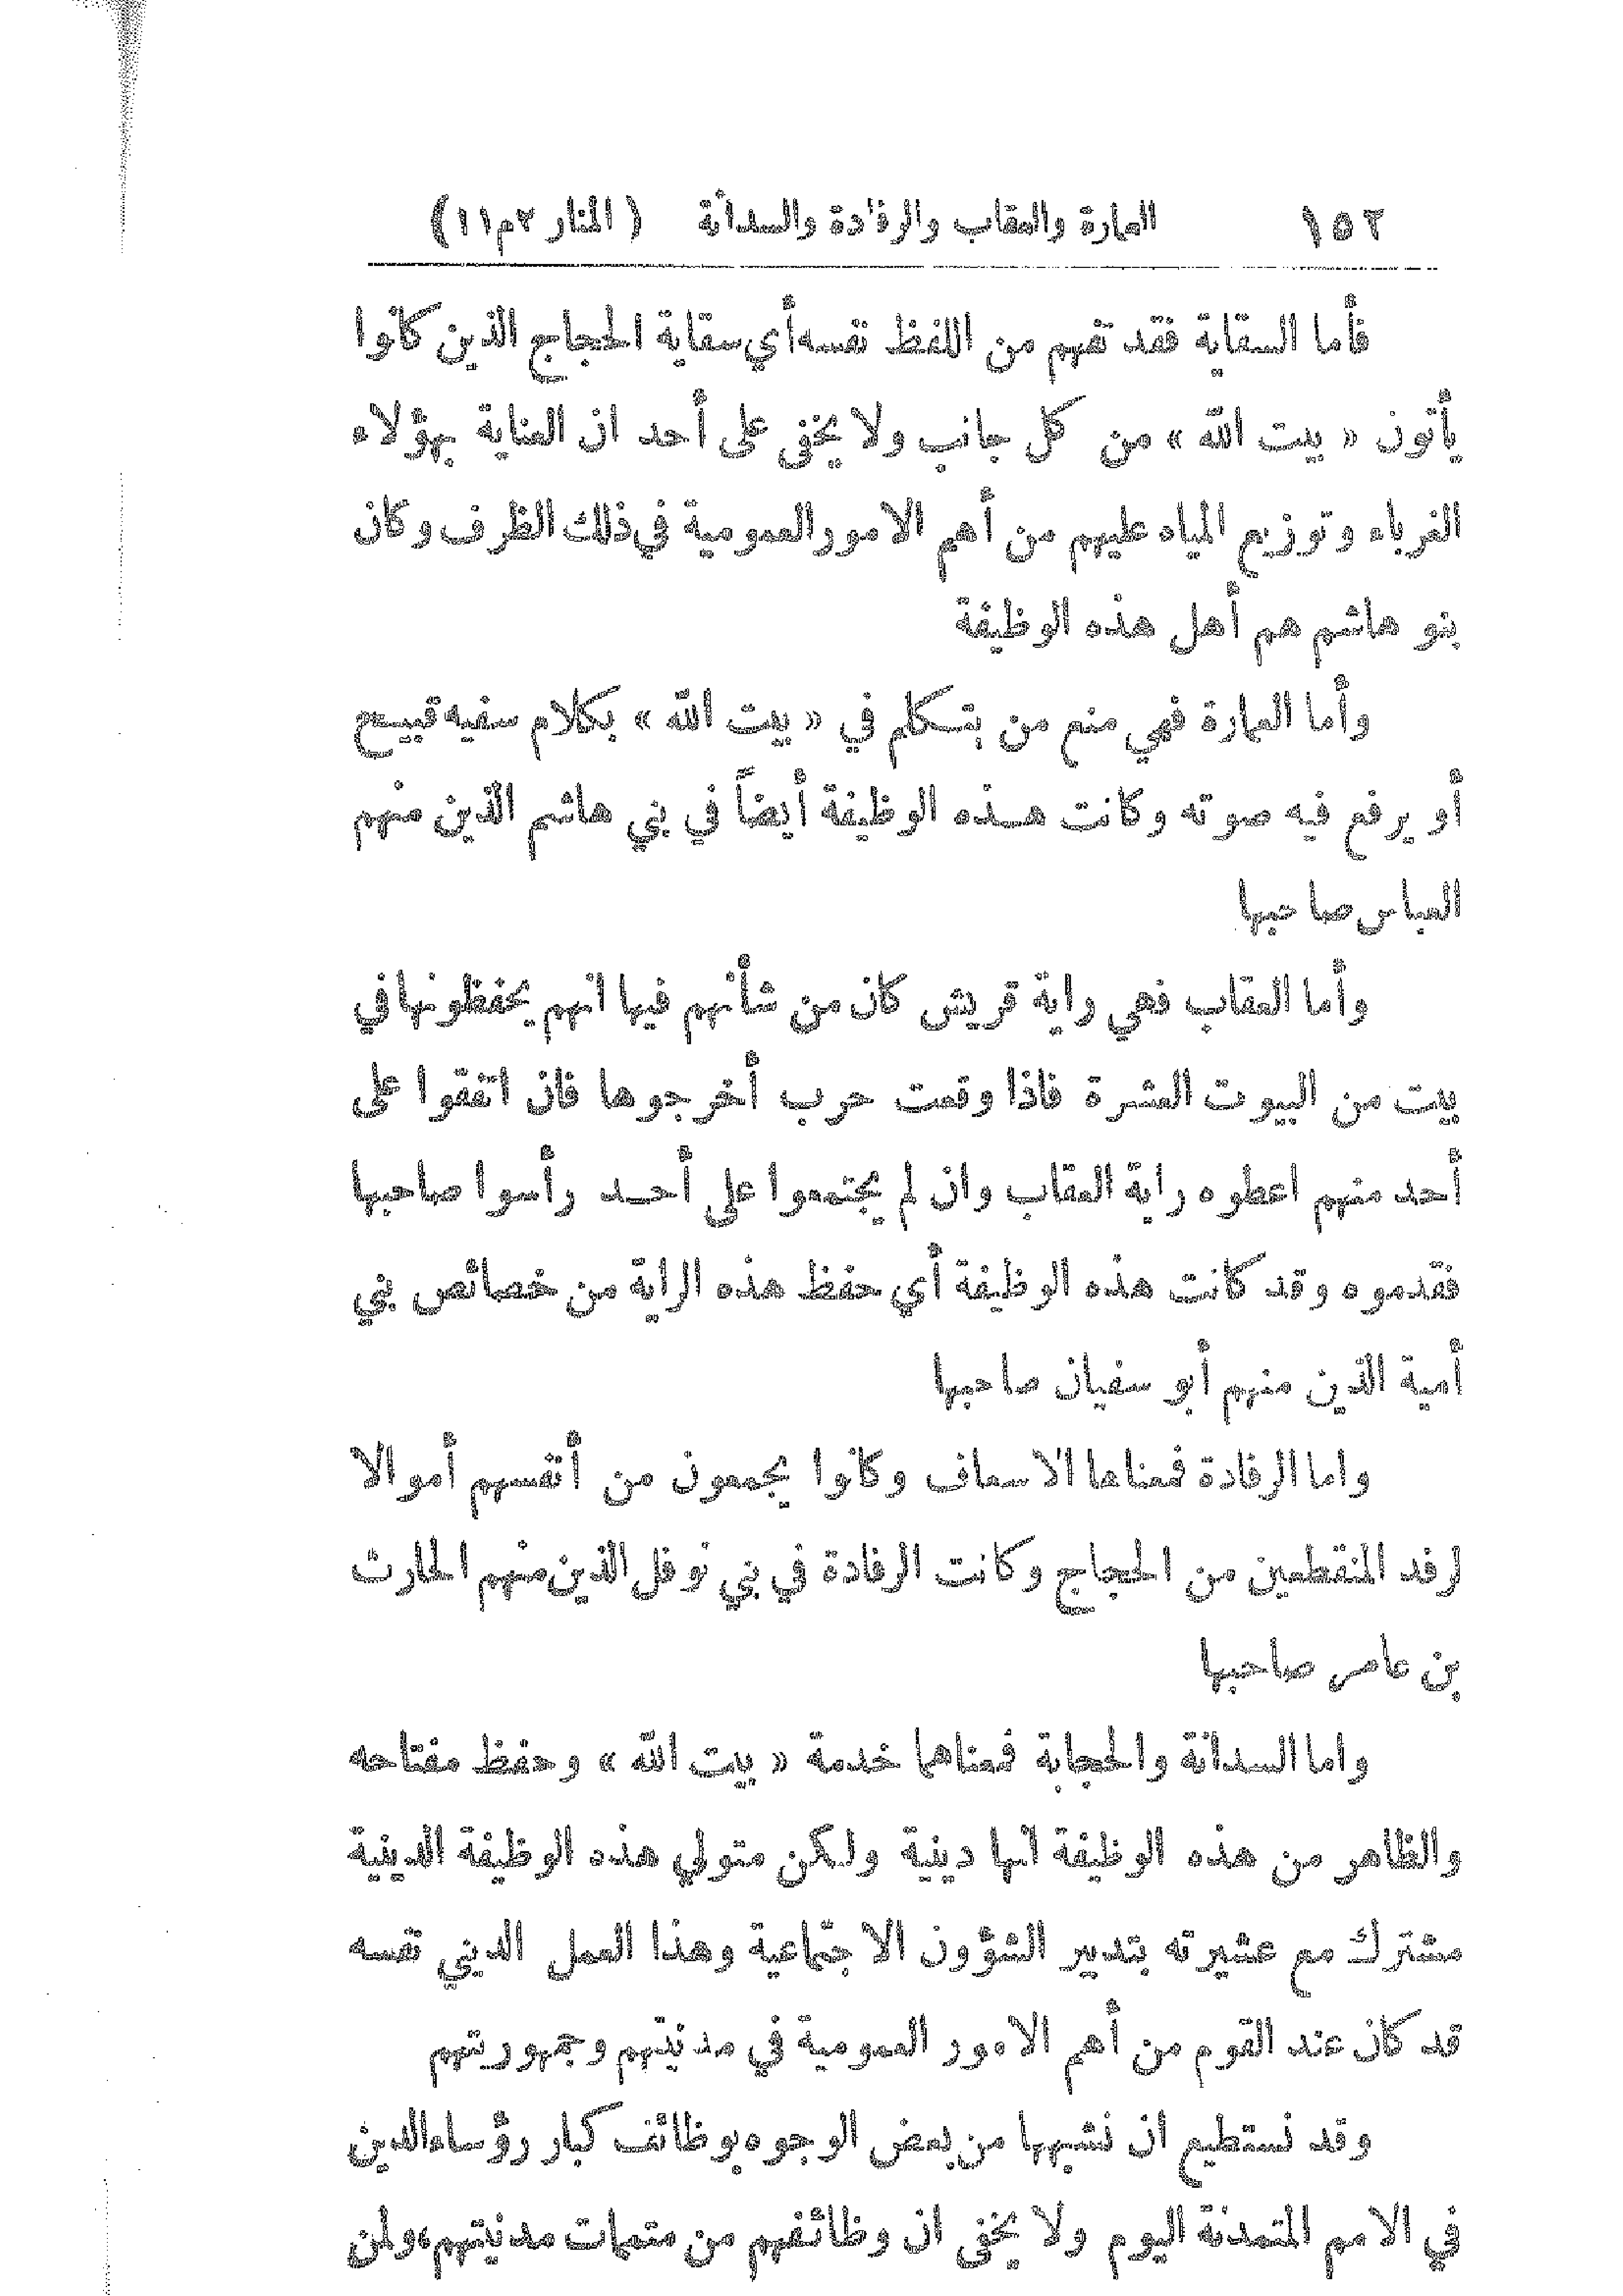 ١٥٢ العمارة والعقاب والرفادة والسدانة ( المنار ٢م١١)
فأما السقاية فقد تفهم من اللفظ نفسه أي سقاية الحجاج الذين كانوا
يأتون « بيت الله » من كل جانب ولا يخفى على أحد ان العناية بهؤلاء
الغرباء وتوزيع المياه عليهم من أهم الامور العمومية في ذلك الظرف وكان
بنو هاشم هم أهل هذه الوظيفة
وأما العمارة فهي منع من يتكلم في « بيت الله » بكلام سفيه قبيح
أو يرفع فيه صوته وكانت هذه الوظيفة أيضاً في بني هاشم الذين منهم
العباس صاحبها
وأما العقاب فهي راية قريش كان من شأنهم فيها انهم يحفظونها في
بيت من البيوت العشرة فاذا وقعت حرب أخرجوها فان اتفقوا على
أحد منهم اعطوه راية العقاب وان لم يجتمعوا على أحد رأسوا صاحبها
فقدموه وقد كانت هذه الوظيفة أي حفظ هذه الراية من خصائص بني
أمية الذين منهم أبو سفيان صاحبها
واما الرفادة فمعناها الاسعاف وكانوا يجمعون من أنفسهم أموالا
لرفد المنقطعين من الحجاج وكانت الرفادة في بني نوفل الذين منهم الحارث
بن عامر صاحبها
واما السدانة والحجابة فمعناهما خدمة « بيت الله » وحفظ مفتاحه
والظاهر من هذه الوظيفة انها دينية ولكن متولي هذه الوظيفة الدينية
مشترك مع عشيرته بتدبير الشؤون الاجتماعية وهذا العمل الديني نفسه
قد كان عند القوم من أهم الامور العمومية في مدنيتهم وجمهوريتهم
وقد نستطيع ان نشبهها من بعض الوجوه بوظائف كبار رؤساء الدين
في الامم المتمدنة اليوم ولا يخفى ان وظائفهم من متممات مدنيتهم، ولمن